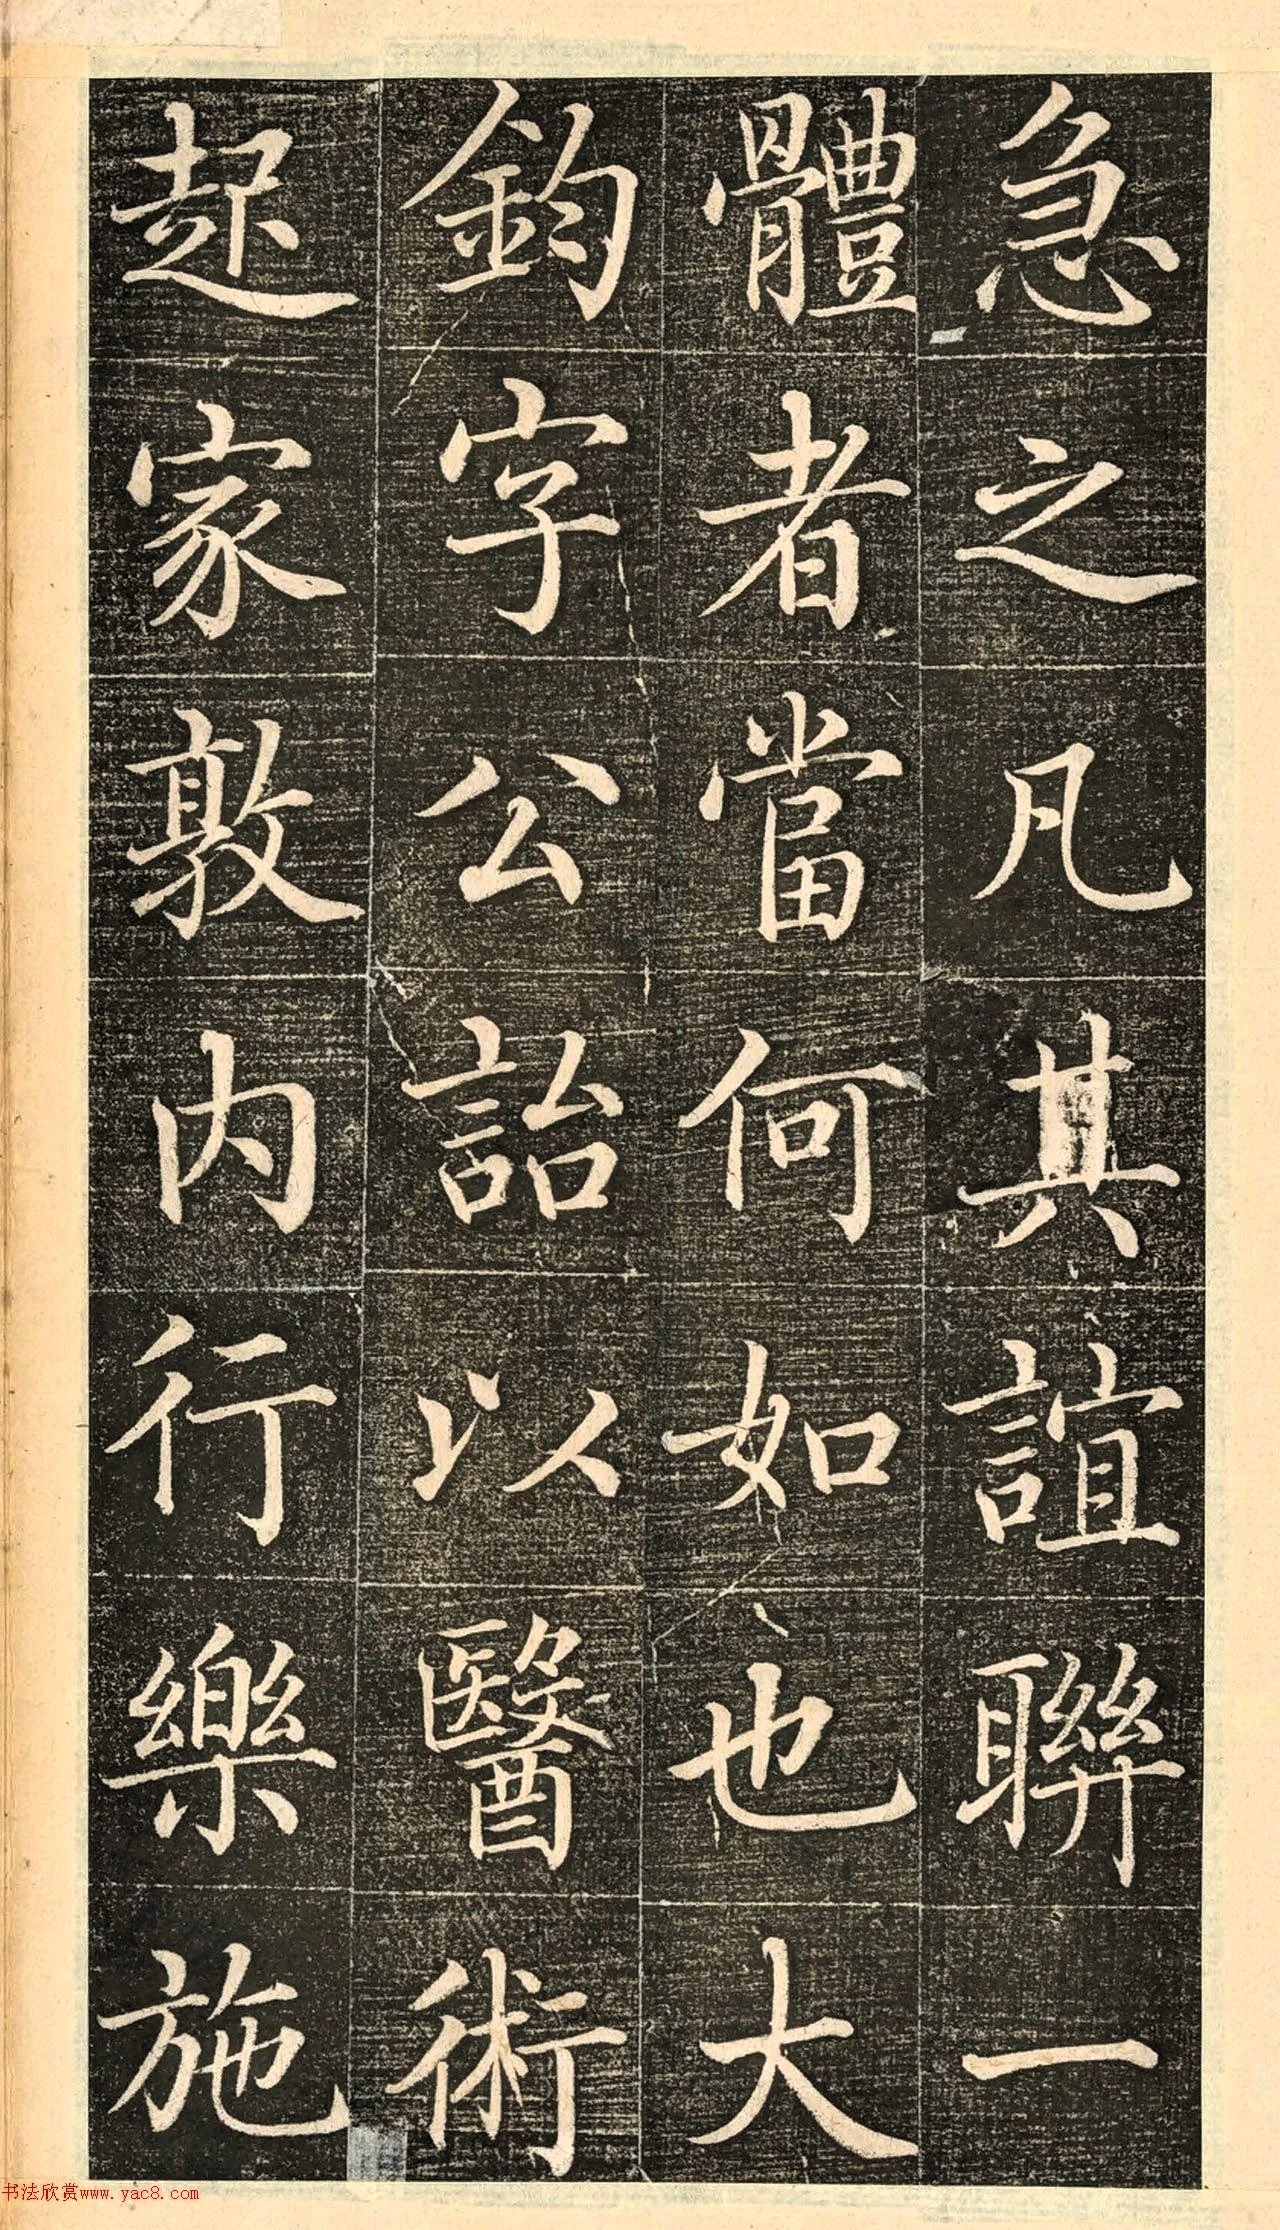 急之凡其誼聯一
體者當何如也大
鈞字公詒以醫術
起家敦内行樂施
书法欣赏www.yac8.com